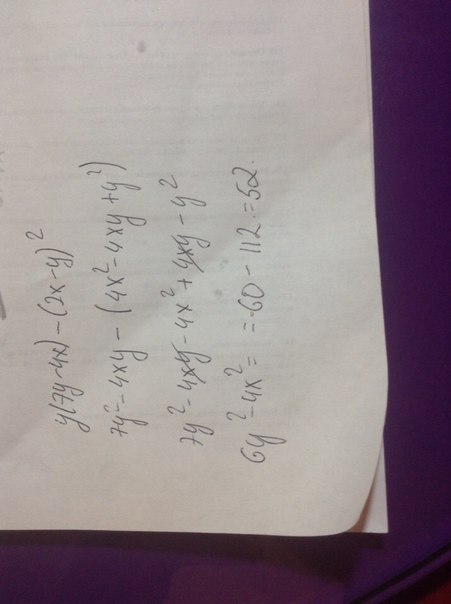 y(7y-4x)-(2x-y)²
7y²-4xy-(4x²-4xy+y²)
7y²-4xy-4x²+4xy-y²
6y²-4x²= =60-112=52.